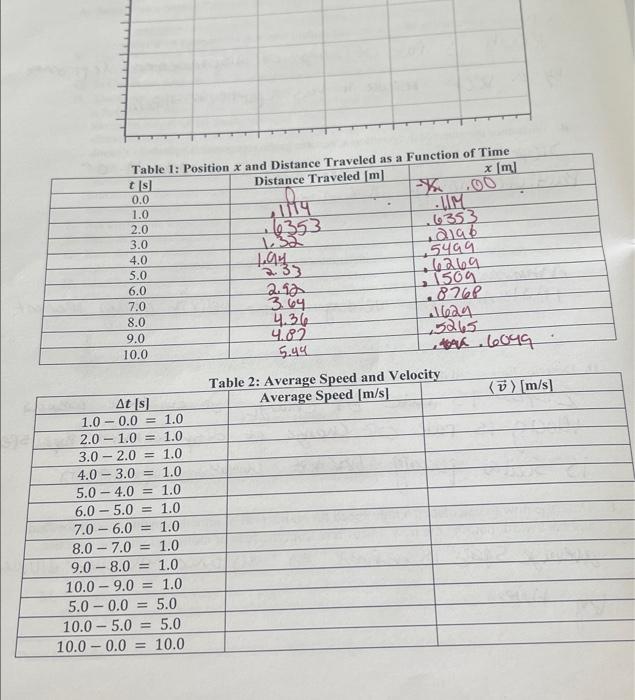 Table 1: Position x and Distance Traveled as a Function of Time
t [s] Distance Traveled [m] x [m]
0.0 0 .00
1.0
2.0 .6353 .6353
3.0 1.32 .2196
4.0 1.94 .5499
5.0 2.33 .6269
6.0 2.92 .1509
7.0 3.64 .8768
8.0 4.36 .1629
9.0 4.87 .5265
10.0 5.44 .6049
Table 2: Average Speed and Velocity
Δt [s] Average Speed [m/s] ⟨v⃗⟩ [m/s]
1.0 – 0.0 = 1.0
2.0 – 1.0 = 1.0
3.0 – 2.0 = 1.0
4.0 – 3.0 = 1.0
5.0 – 4.0 = 1.0
6.0 – 5.0 = 1.0
7.0 – 6.0 = 1.0
8.0 – 7.0 = 1.0
9.0 – 8.0 = 1.0
10.0 – 9.0 = 1.0
5.0 – 0.0 = 5.0
10.0 – 5.0 = 5.0
10.0 – 0.0 = 10.0